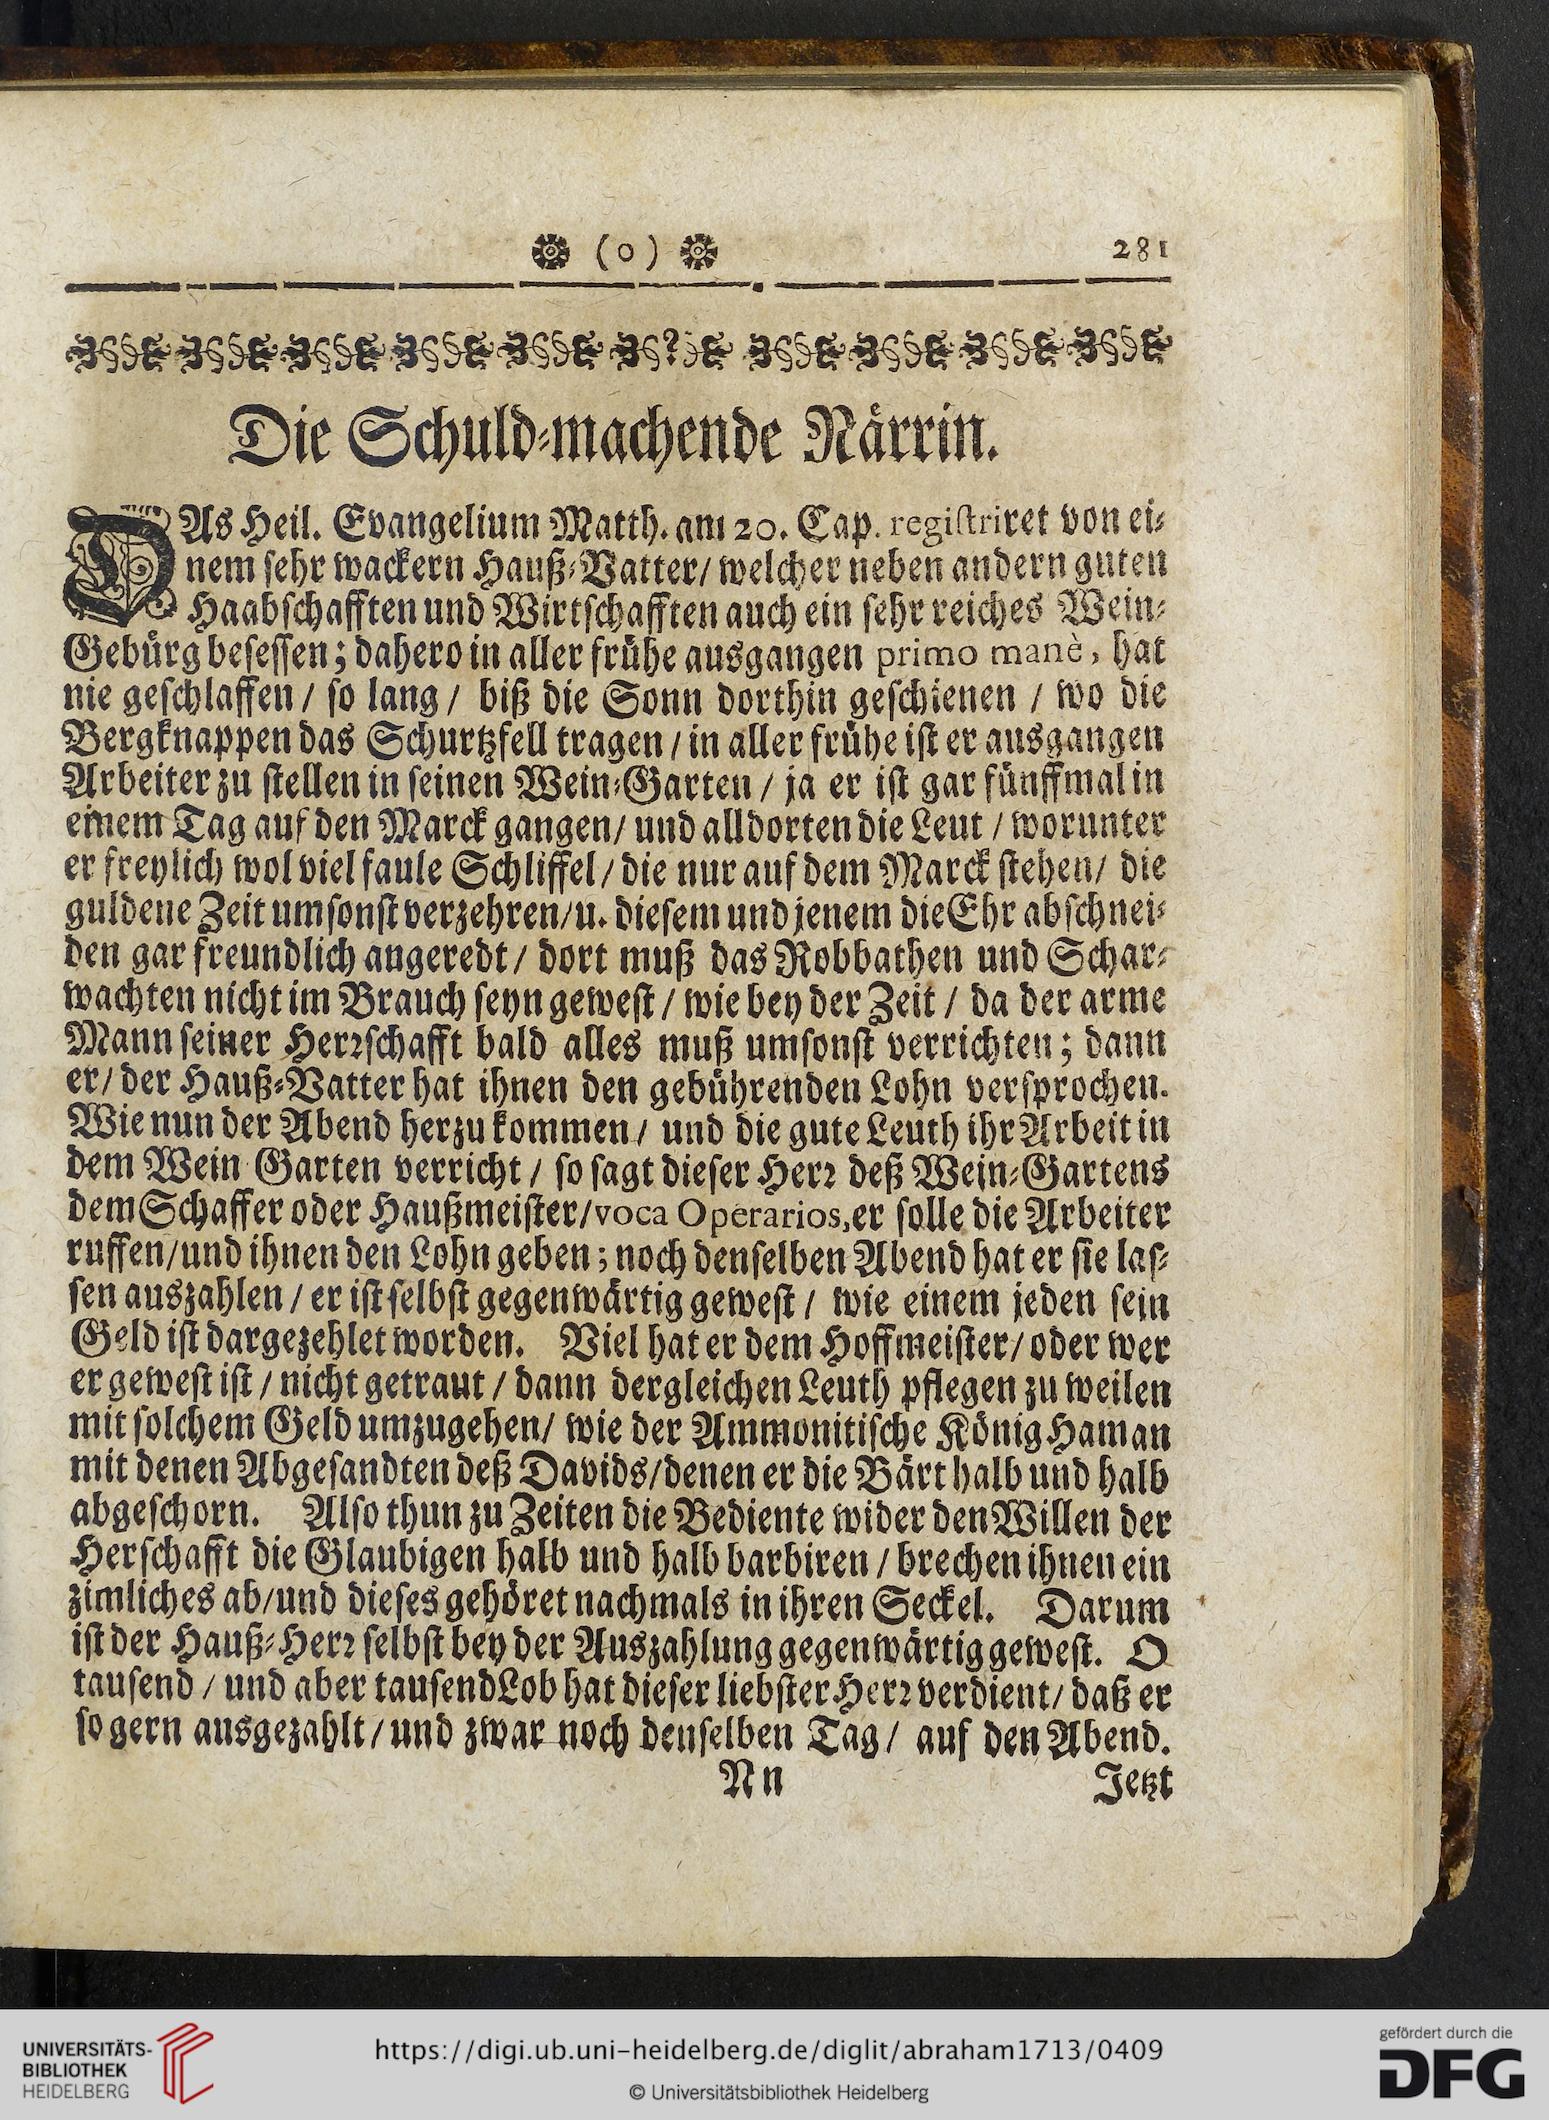 (0) 281
Die Schuld-machende Närrin.
DAs Heil. Evangelium Matth. am 20. Cap. registriret von ei-
nem sehr wackern Hauß-Vatter/ welcher neben andern guten
Haabschafften und Wirtschafften auch ein sehr reiches Wein-
Gebürg besessen; dahero in aller frühe ausgangen primo manè, hat
nie geschlaffen / so lang / biß die Sonn dorthin geschienen / wo die
Bergknappen das Schurtzfell tragen / in aller frühe ist er ausgangen
Arbeiter zu stellen in seinen Wein-Garten / ja er ist gar fünffmal in
einem Tag auf den Marck gangen/ und alldorten die Leut / worunter
er freylich wol viel faule Schliffel/ die nur auf dem Marck stehen/ die
guldene Zeit umsonst verzehren/u. diesem und jenem die Ehr abschnei-
den gar freundlich angeredt / dort muß das Robbathen und Schar-
wachten nicht im Brauch seyn gewest / wie bey der Zeit / da der arme
Mann seiner Herrschafft bald alles muß umsonst verrichten; dann
er/ der Hauß-Vatter hat ihnen den gebührenden Lohn versprochen.
Wie nun der Abend herzu kommen/ und die gute Leuth ihr Arbeit in
dem Wein Garten verricht / so sagt dieser Herr deß Wein-Gartens
dem Schaffer oder Haußmeister/voca Operarios, er solle die Arbeiter
ruffen/und ihnen den Lohn geben; noch denselben Abend hat er sie las-
sen auszahlen / er ist selbst gegenwärtig gewest / wie einem jeden sein
Geld ist dargezehlet worden. Viel hat er dem Hoffmeister/ oder wer
er gewest ist / nicht getraut / dann dergleichen Leuth pflegen zu weilen
mit solchem Geld umzugehen/ wie der Ammonitische König Haman
mit denen Abgesandten deß Davids/denen er die Bärt halb und halb
abgeschorn. Also thun zu Zeiten die Bediente wider den Willen der
Herschafft die Glaubigen halb und halb barbiren / brechen ihnen ein
zimliches ab/und dieses gehöret nachmals in ihren Seckel. Darum
ist der Hauß-Herr selbst bey der Auszahlung gegenwärtig gewest. O
tausend / und aber tausend Lob hat dieser liebster Herr verdient/ daß er
so gern ausgezahlt / und zwar noch denselben Tag / auf den Abend.
Nn Jetzt
UNIVERSITÄTS-
BIBLIOTHEK
HEIDELBERG
https://digi.ub.uni-heidelberg.de/diglit/abraham1713/0409
© Universitätsbibliothek Heidelberg
gefördert durch die
DFG